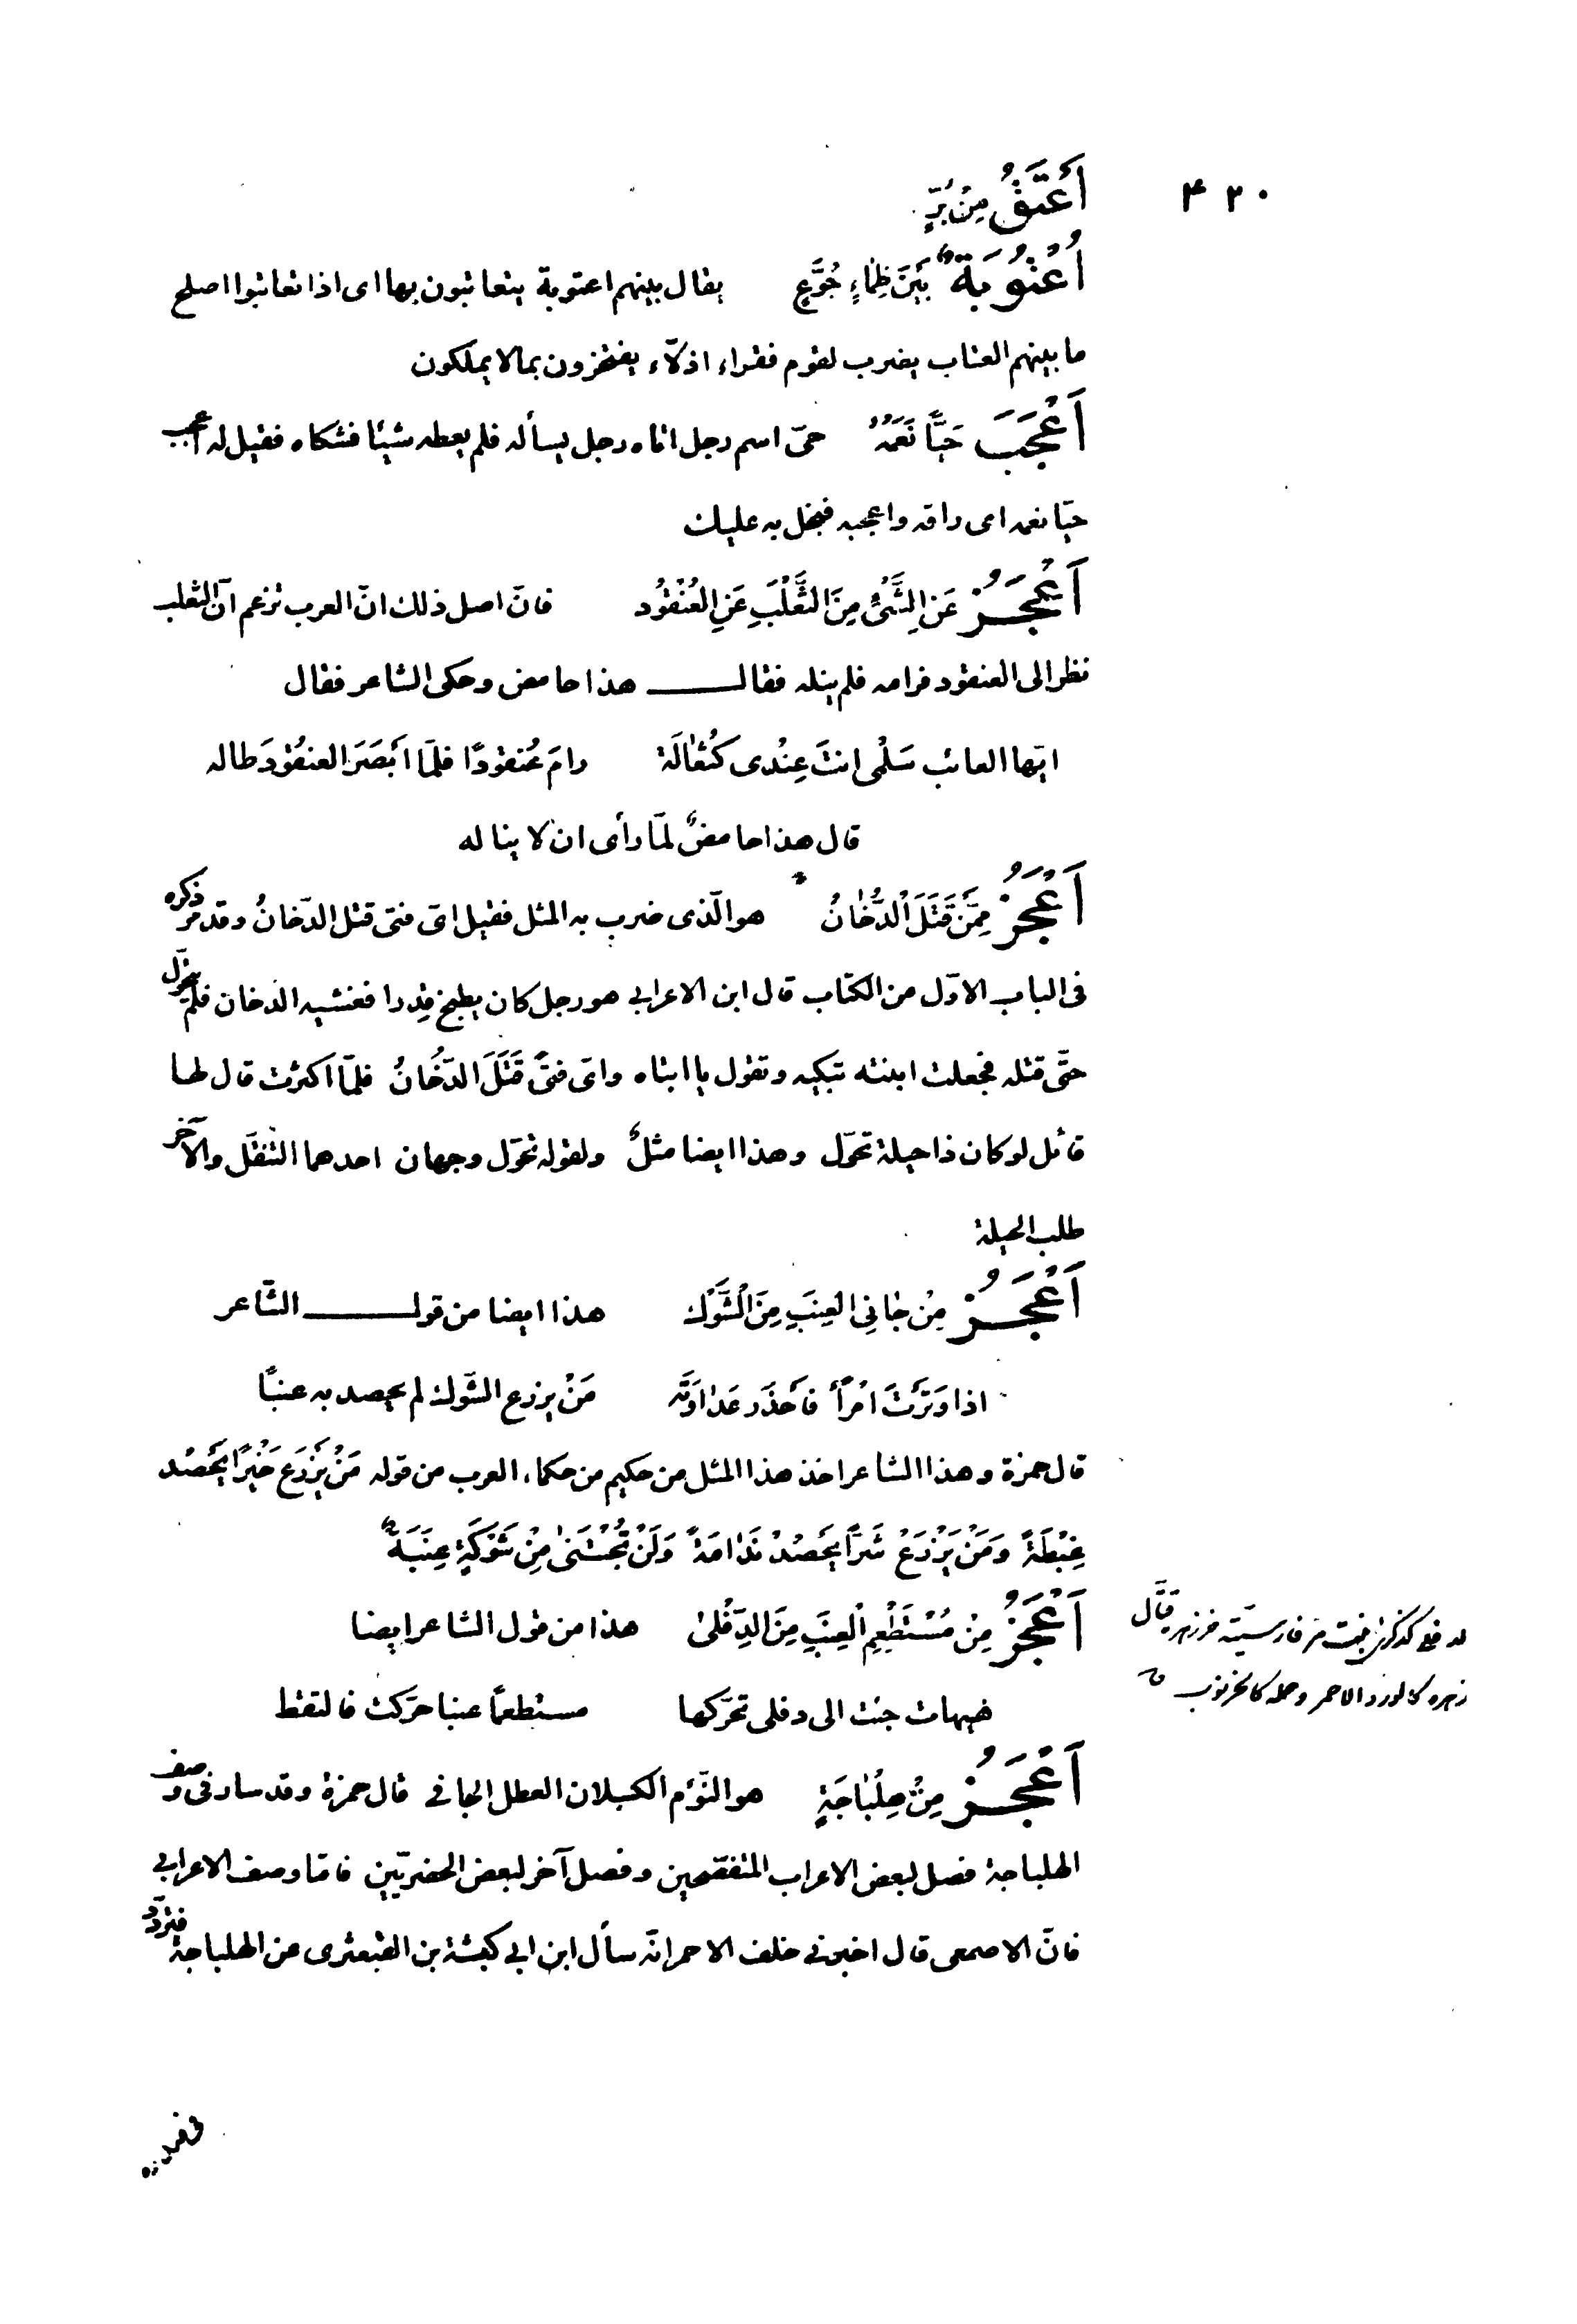 ۴۲۰
أَعْتَقُ مِنْ بُرٍّ
أُعْتُوبَةٌ بَيْنَ ظِمَاءٍ جُوَّعٍ يقال بينهم اعتوبة يتعاتبون بها اى اذا تعاتبوا اصلح
ما بينهم العتاب يضرب لقوم فقراء اذلّاء يفتخرون بمالا يملكون
أَعْجَبَ حَيًّا نَعَمُهُ حىّ اسم رجل اتاه رجل يسأله فلم يعطه شيئا فشكاه فقيل له اعجب
حيّا نعمه اى راقه واعجبه فبخل به عليك
أَعْجَزُ عَنِ الشَّىْءِ مِنَ الثَّعْلَبِ عَنِ العُنْقُودِ فانّ اصل ذلك انّ العرب تزعم انّ الثعلب
نظر الى العنقود فرامه فلم ينله فقال هذا حامض وحكى الشاعر فقال
ايّها العائب سَلْمى انتَ عِنْدى كَثُعَالَة رامَ عُنقودًا فلمّا أبْصَرَ العنْقُودَ طاله
قال هذا حامضٌ لمّا رأى ان لا يناله
أَعْجَزُ مِمَّنْ قَتَلَ الدُّخَانُ هو الّذى ضرب به المثل فقيل اىّ فتى قتل الدّخانُ وقد مرّ ذكره
فى الباب الاوّل من الكتاب قال ابن الاعرابى هو رجل كان يطبخ قِدرا فغشيه الدخان فلم يتحوّل
حتّى قتله فجعلت ابنته تبكيه وتقول يا ابتاه واىّ فتىً قَتَلَ الدّخَانُ فلمّا اكثرت قال لها
قائل لو كان ذا حيلة تحوّل وهذا ايضا مثلٌ ولقوله تحوّل وجهان احدهما التنقّل والآخر
طلب الحيلة
أَعْجَزُ مِنْ جَانِى العِنَبِ مِنَ الشَّوْكِ هذا ايضا من قول الشّاعر
اذا وَتَرْتَ امْرَأً فَاحْذَر عَدَاوَتَه مَنْ يزرع الشّوك لم يحصد به عنبًا
قال حمزة وهذا الشاعر اخذ هذا المثل من حكيم من حكماء العرب من قوله مَنْ يَزْرَع خَيْرًا يَحْصُد
غِبْطَةً وَمَنْ يَزْرَعْ شَرًّا يَحْصُدْ نَدَامَةً وَلَنْ تُجْتَنَى مِنْ شَوْكَةٍ عِنَبَةٌ
أَعْجَزُ مِنْ مُسْتَطْعِمِ العِنَبِ مِنَ الدِّفْلَى هذا من قول الشاعر ايضا
هيهات جئت الى دفلى تحرّكها مستطعمًا عنبا حرّكت فالتقط
أَعْجَزُ مِنْ هِلْبَاجَةٍ هو النّؤم الكسلان العطل الجافى قال حمزة وقد سار فى وصف
الهلباجة فصل لبعض الاعراب المتفصّحين وفصل آخر لبعض الحضريّين فامّا وصف الاعرابى
فانّ الاصمعى قال اخبرنى خلف الاحمر انّه سأل ابن ابى كبشة بن القبعثرى عن الهلباجة فتردّد
نبت فارسيّته خرزهره قتّال
زهره كالورد الاحمر وحمله كالخرنوب